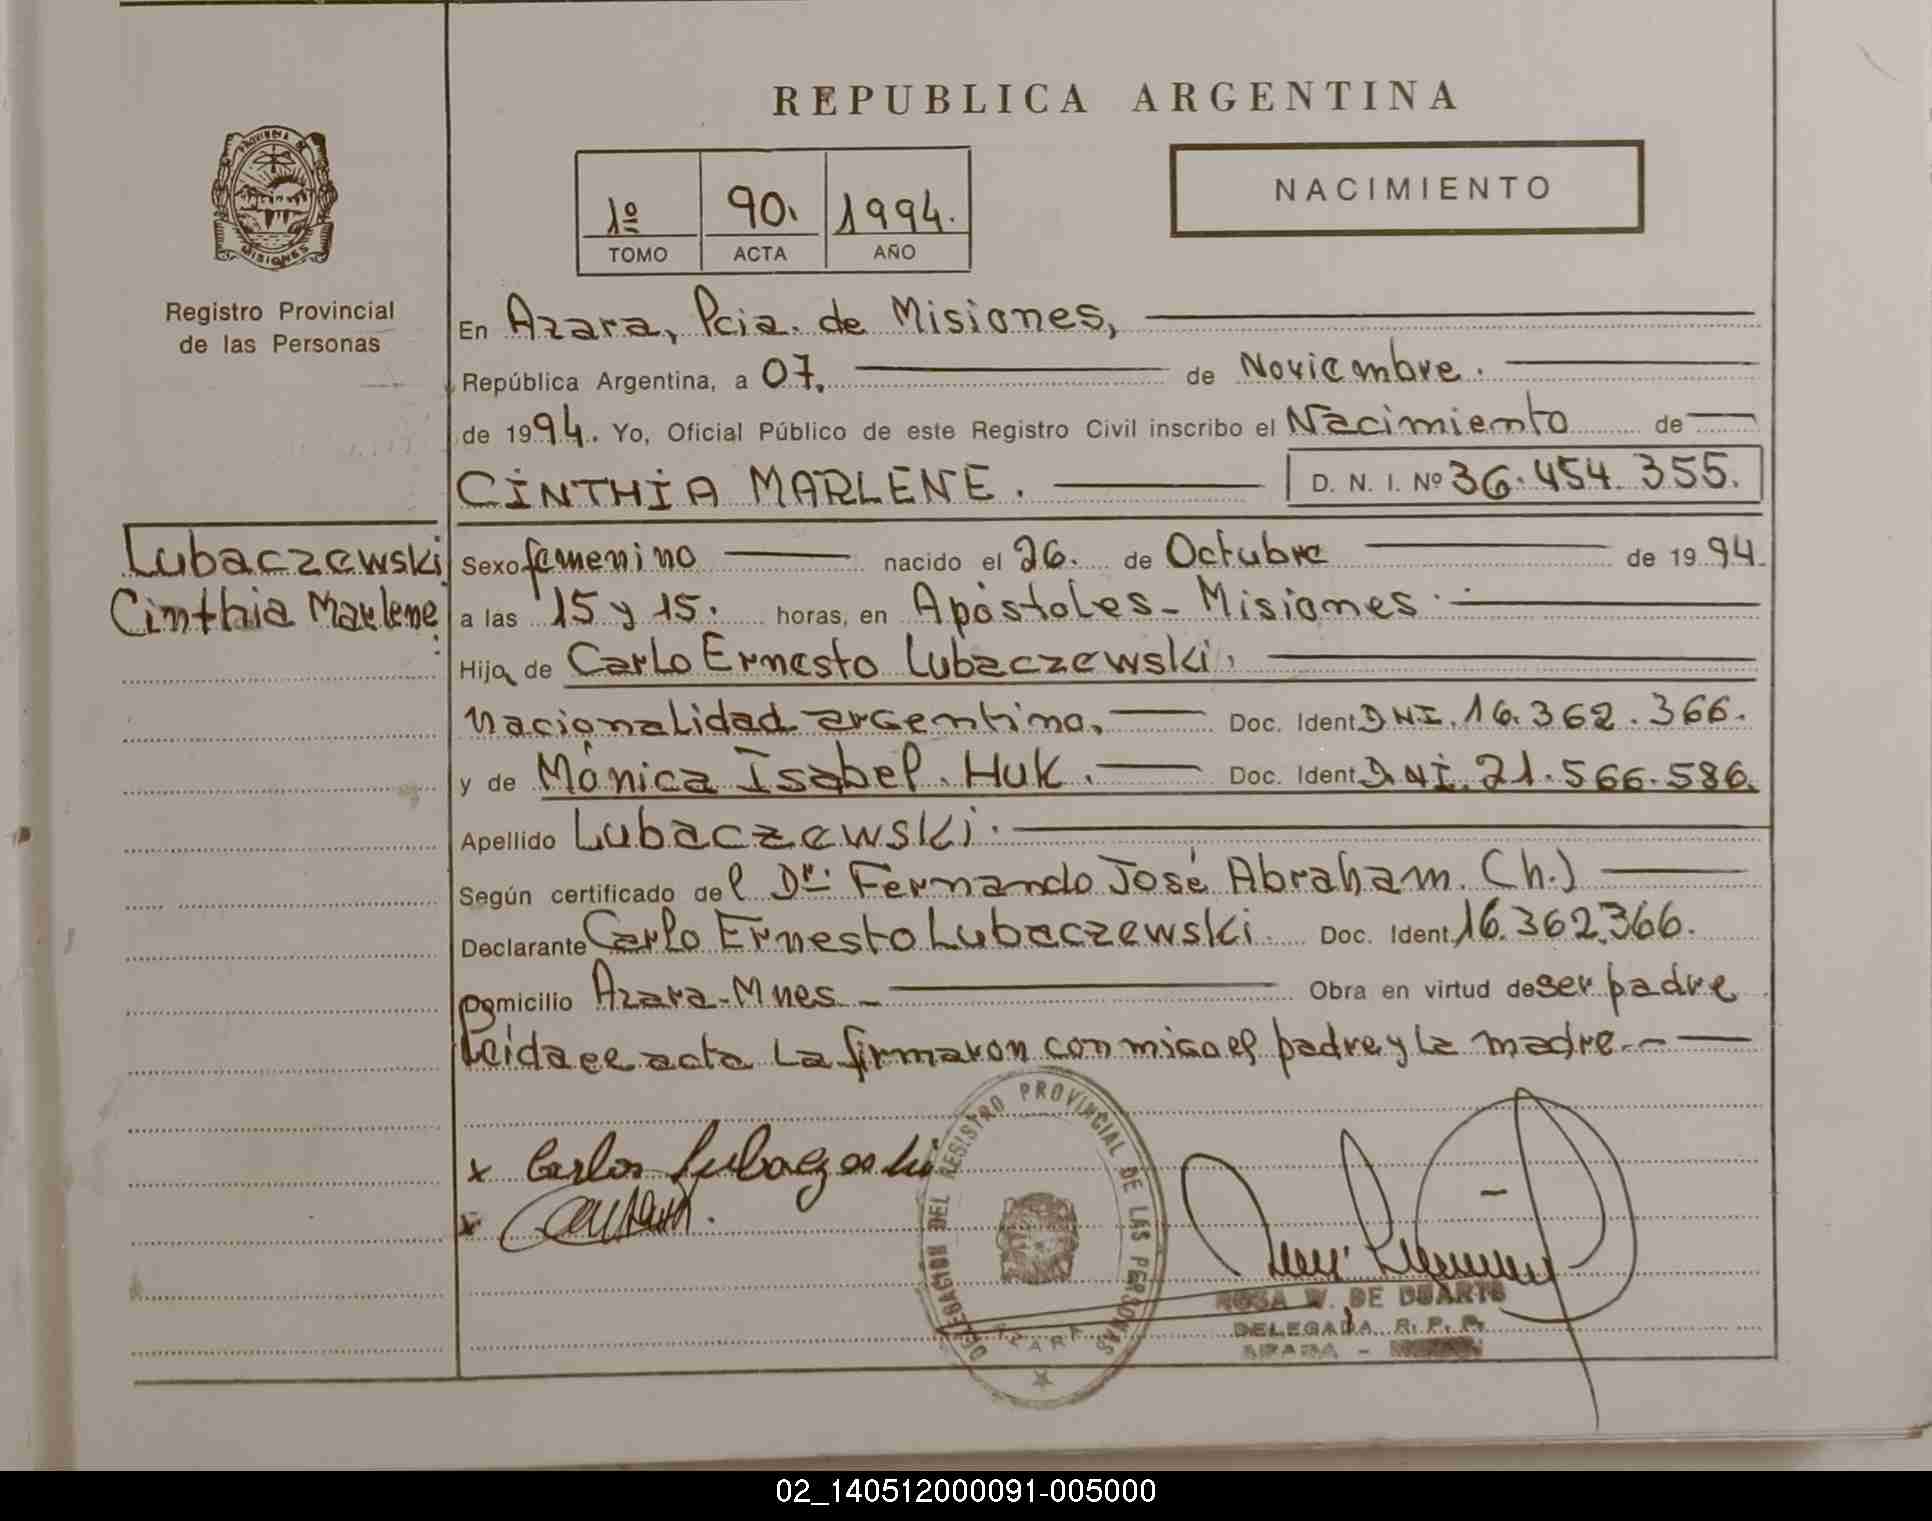 REPUBLICA ARGENTINA
PROVINCIA DE
MISIONES
Registro Provincial
de las Personas
1º 90. 1994.
TOMO ACTA AÑO
NACIMIENTO
En Azara, Pcia. de Misiones,
República Argentina, a 07. de Noviembre.
de 1994. Yo, Oficial Público de este Registro Civil inscribo el Nacimiento de
CINTHIA MARLENE. D. N. I. Nº 36.454.355.
Lubaczewski
Cinthia Marlene
Sexo femenino nacido el 26. de Octubre de 1994.
a las 15 y 15. horas, en Apóstoles - Misiones.
Hija de Carlo Ernesto Lubaczewski,
Nacionalidad argentino, Doc. Ident. DNI. 16.362.366.
y de Mónica Isabel Huk. Doc. Ident. DNI. 21.566.586.
Apellido Lubaczewski.
Según certificado del Dr. Fernando José Abraham. (h.)
Declarante Carlo Ernesto Lubaczewski. Doc. Ident. 16.362.366.
Domicilio Azara - Mnes - Obra en virtud de ser padre
Leida el acta la firmaron conmigo el padre y la madre.-
x Carlos Lubaczeski
x
DELEGACION DEL REGISTRO PROVINCIAL DE LAS PERSONAS
AZARA
ROSA W. DE DUARTE
DELEGADA R. P. P.
AZARA -
02_140512000091-005000